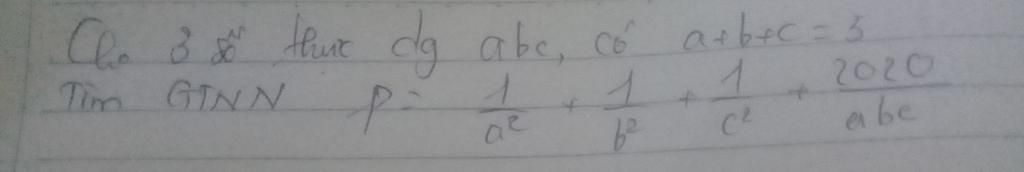 Cho 3 số thực dg abc, có a+b+c = 3
Tìm GTNN P = 1/a² + 1/b² + 1/c² + 2020/abc